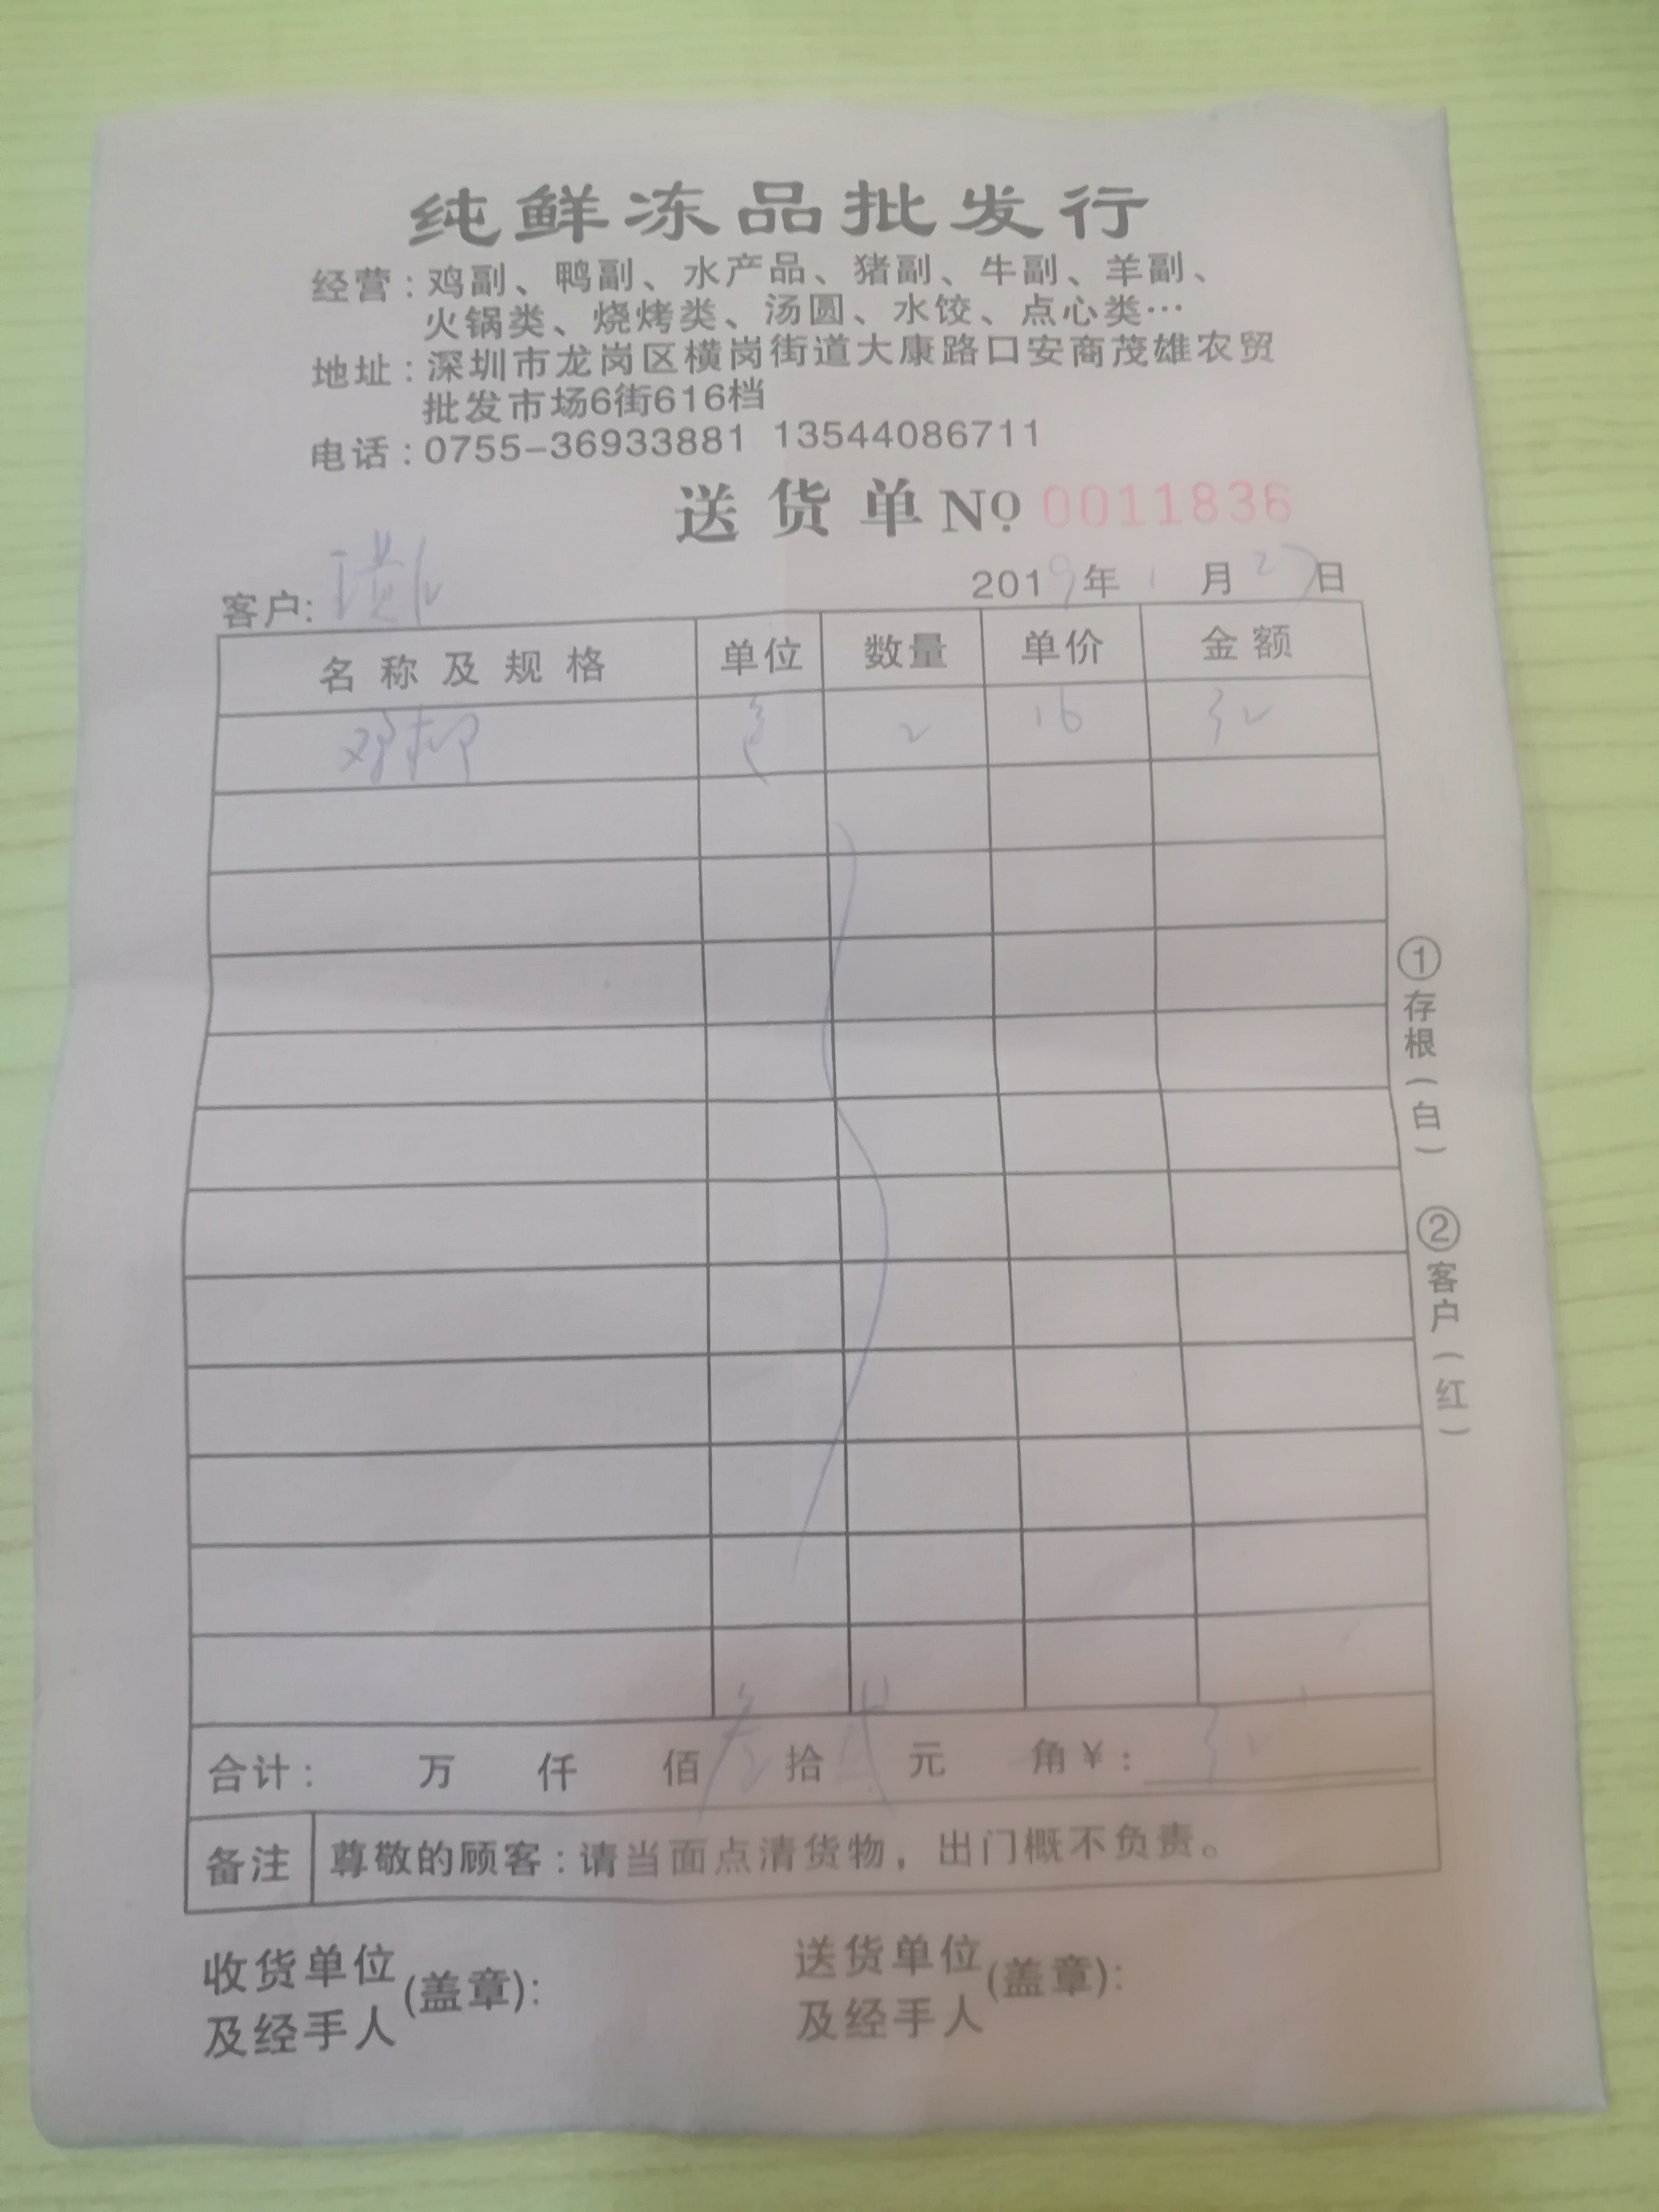 纯鲜冻品批发行
经营:鸡副、鸭副、水产品、猪副、牛副、羊副、
火锅类、烧烤类、汤圆、水饺、点心类…
地址:深圳市龙岗区横岗街道大康路口安商茂雄农贸
批发市场6街616档
电话:0755-36933881 13544086711
送货单 No 0011836
客户:
2019年1月27日
名称及规格 单位 数量 单价 金额
2 16 32
合计: 万 仟 佰 叁拾 贰元 角¥: 32
备注 尊敬的顾客:请当面点清货物，出门概不负责。
收货单位及经手人(盖章): 送货单位及经手人(盖章):
①存根(白) ②客户(红)